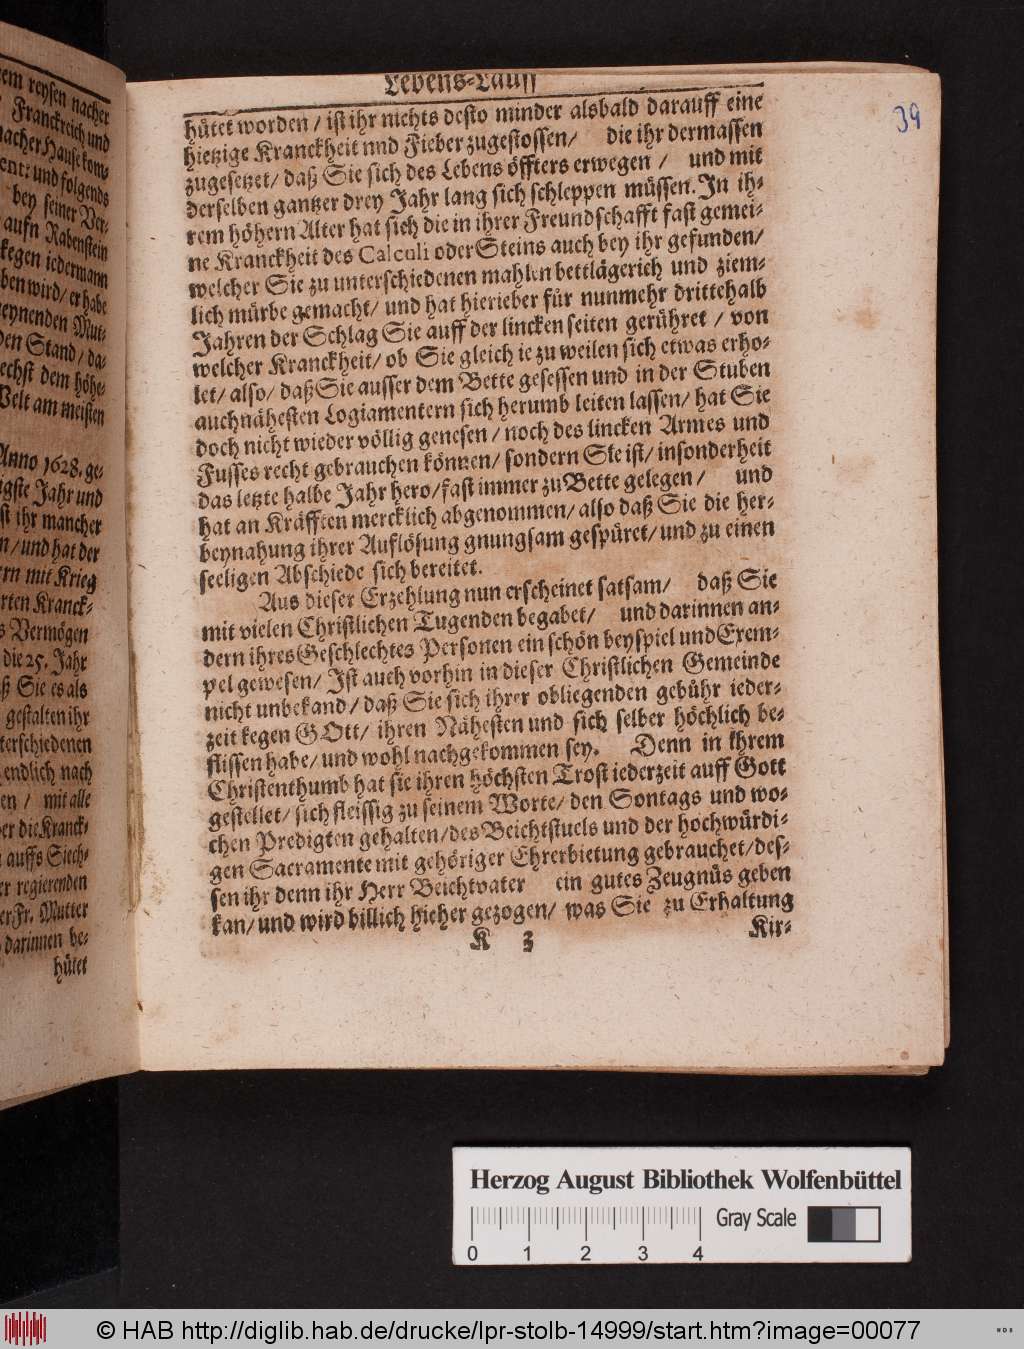 em reysen nacher
Franckreich und
nacher Hause kom-
ent: und folgends
bey seiner Ver-
aufn Rabenstein
kegen iedermann
ben wird/ er habe
eynenden Mut-
den Stand/ da-
echst dem höhe-
Welt am meisten
Anno 1628. ge-
igste Jahr und
st ihr mancher
n/ und hat der
ern mit Krieg
rten Kranck-
s Vermögen
die 25. Jahr
ß Sie es als
gestalten ihr
terschiedenen
endlich nach
en / mit alle
er die Kranck-
auffs Siech-
er regierenden
er Fr. Mutter
darinnen be-
hütet
Lebens-Lauff
39
hütet worden / ist ihr nichts desto minder alsbald darauff eine
hietzige Kranckheit und Fieber zugestossen/ die ihr dermassen
zugesetzet/ daß Sie sich des Lebens öffters erwegen / und mit
derselben gantzer drey Jahr lang sich schleppen müssen. In ih-
rem höhern Alter hat sich die in ihrer Freundschafft fast gemei-
ne Kranckheit des Calculi oder Steins auch bey ihr gefunden/
welcher Sie zu unterschiedenen mahlen bettlägerich und ziem-
lich mürbe gemacht/ und hat hierieber für nunmehr drittehalb
Jahren der Schlag Sie auff der lincken seiten gerühret / von
welcher Kranckheit/ ob Sie gleich ie zu weilen sich etwas erho-
let/ also/ daß Sie ausser dem Bette gesessen und in der Stuben
auch nähesten Logiamentern sich herumb leiten lassen/ hat Sie
doch nicht wieder völlig genesen / noch des lincken Armes und
Fusses recht gebrauchen können/ sondern Sie ist/ insonderheit
das letzte halbe Jahr hero/ fast immer zu Bette gelegen / und
hat an Kräfften mercklich abgenommen/ also daß Sie die her-
beynahung ihrer Auflösung gnungsam gespüret/ und zu einen
seeligen Abschiede sich bereitet.
Aus dieser Erzehlung nun erscheinet satsam/ daß Sie
mit vielen Christlichen Tugenden begabet/ und darinnen an-
dern ihres Geschlechtes Personen ein schön beyspiel und Exem-
pel gewesen/ Ist auch vorhin in dieser Christlichen Gemeinde
nicht unbekand/ daß Sie sich ihrer obliegenden gebühr ieder-
zeit kegen GOtt/ ihren Nähesten und sich selber höchlich be-
flissen habe/ und wohl nachgekommen sey. Denn in ihrem
Christenthumb hat sie ihren höchsten Trost iederzeit auff Gott
gestellet/ sich fleissig zu seinem Worte/ den Sontags und wo-
chen Predigten gehalten/ des Beichtstuels und der hochwürdi-
gen Sacramente mit gehöriger Ehrerbietung gebrauchet/ des-
sen ihr denn ihr Herr Beichtvater ein gutes Zeugnüs geben
kan/ und wird billich hieher gezogen/ was Sie zu Erhaltung
K 3 Kir-
Herzog August Bibliothek Wolfenbüttel
Gray Scale
0 1 2 3 4
© HAB http://diglib.hab.de/drucke/lpr-stolb-14999/start.htm?image=00077
WDB